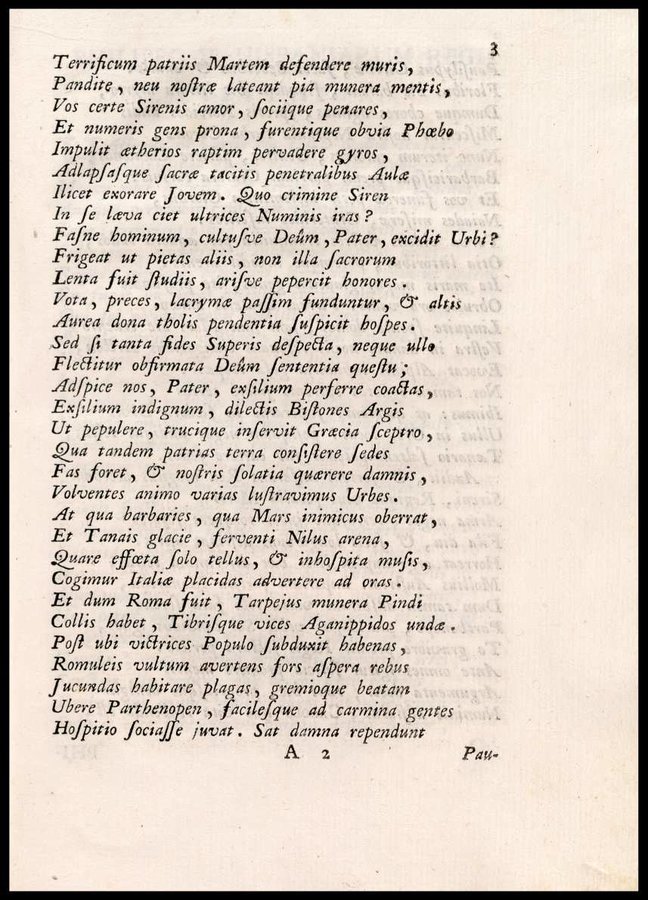 3
Terrificum patriis Martem defendere muris,
Pandite, neu nostræ lateant pia munera mentis,
Vos certe Sirenis amor, sociique penares,
Et numeris gens prona, furentique obvia Phœbo
Impulit ætherios raptim pervadere gyros,
Adlapsasque sacræ tacitis penetralibus Aulæ
Ilicet exorare Jovem. Quo crimine Siren
In se læva ciet ultrices Numinis iras?
Fasne hominum, cultusve Deûm, Pater, excidit Urbi?
Frigeat ut pietas aliis, non illa sacrorum
Lenta fuit studiis, arisve pepercit honores.
Vota, preces, lacrymæ passim funduntur, & altis
Aurea dona tholis pendentia suspicit hospes.
Sed si tanta fides Superis despecta, neque ullo
Flectitur obfirmata Deûm sententia questu;
Adspice nos, Pater, exsilium perferre coactas,
Exsilium indignum, dilectis Bistones Argis
Ut pepulere, trucique inservit Græcia sceptro,
Qua tandem patrias terra consistere sedes
Fas foret, & nostris solatia quærere damnis,
Volventes animo varias lustravimus Urbes.
At qua barbaries, qua Mars inimicus oberrat,
Et Tanais glacie, ferventi Nilus arena,
Quare effœta solo tellus, & inhospita musis,
Cogimur Italiæ placidas advertere ad oras.
Et dum Roma fuit, Tarpejus munera Pindi
Collis habet, Tibrisque vices Aganippidos undæ.
Post ubi victrices Populo subduxit habenas,
Romuleis vultum avertens fors aspera rebus
Jucundas habitare plagas, gremioque beatam
Ubere Parthenopen, facilesque ad carmina gentes
Hospitio sociasse juvat. Sat damna rependunt
A 2 Pau-